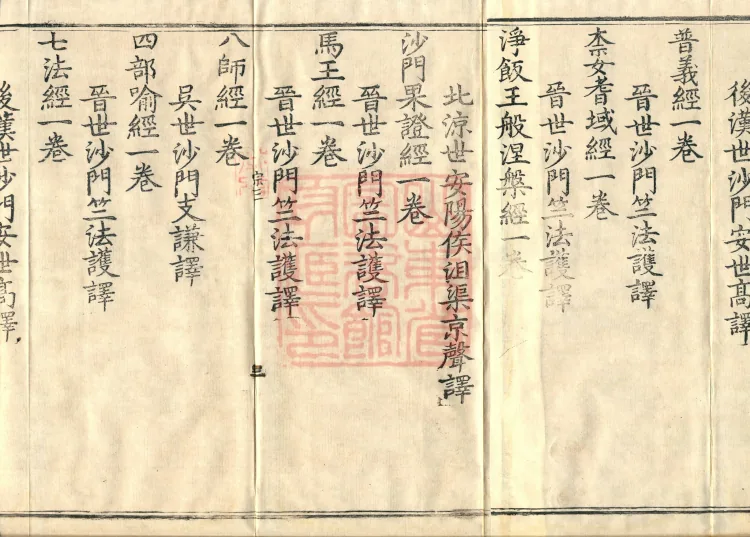 後漢世沙門安世髙譯
普義經一卷
晉世沙門竺法護譯
柰女耆域經一卷
晉世沙門竺法護譯
淨飯王般涅槃經一卷
北涼世安陽侯沮渠京聲譯
沙門果證經一卷
晉世沙門竺法護譯
馬王經一卷
晉世沙門竺法護譯
宗二
三
八師經一卷
吳世沙門支謙譯
四部喻經一卷
晉世沙門竺法護譯
七法經一卷
後漢世沙門安世髙譯